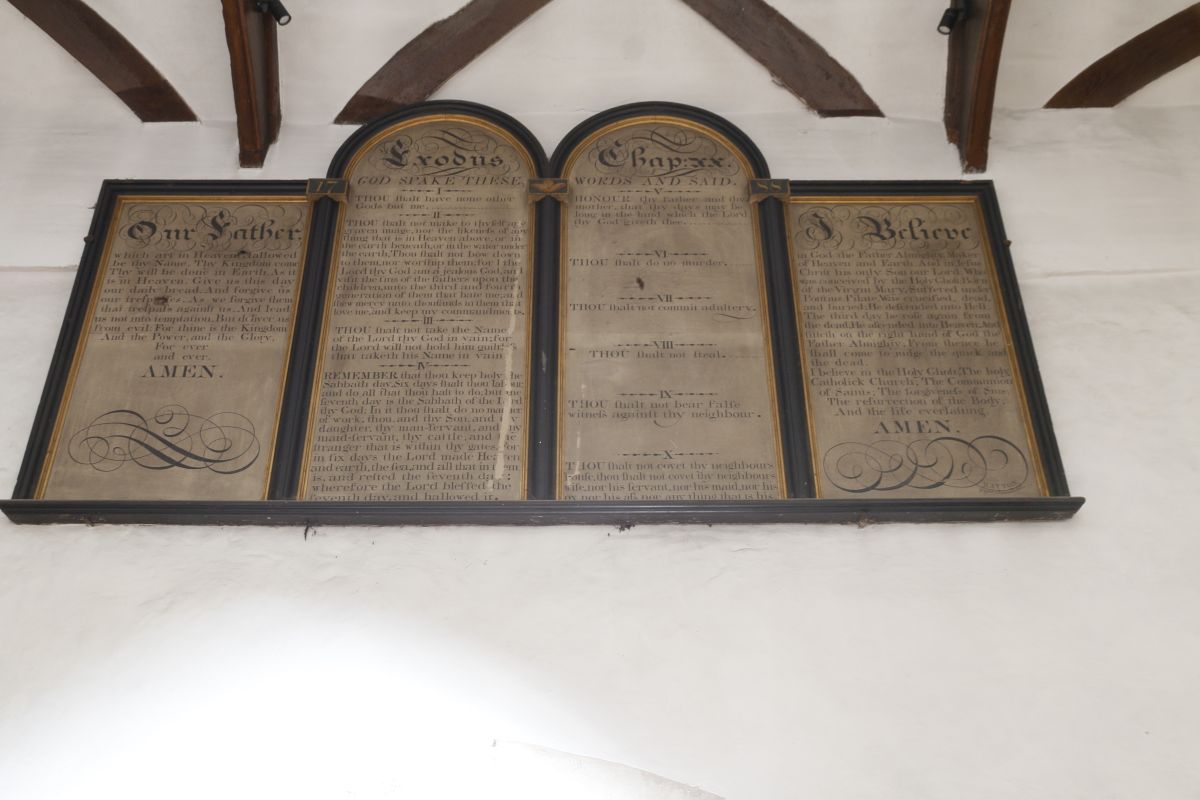 17
88
Our Father,
which art in Heaven, Hallowed
be thy Name, Thy Kingdom come
Thy will be done in Earth, As it
is in Heaven. Give us this day
our daily bread. And forgive us
our trespaſses. As we forgive them
that treſpaſs againſt us. And lead
us not into temptation. But deliver us
from evil: For thine is the Kingdom
And the Power, and the Glory,
For ever
and ever.
AMEN.
Exodus
GOD SPAKE THESE
I
THOU ſhalt have none other
Gods but me.
II
THOU ſhalt not make to thyſelf any
graven image, nor the likeneſs of any
thing that is in Heaven above, or in
the earth beneath, or in the water under
the earth, Thou ſhalt not bow down
to them, nor worſhip them: for I the
Lord thy God am a jealous God, and
viſit the ſins of the fathers upon the
children to the third and fourth
generation of them that hate me; and
ſhew mercy unto thouſands in them that
love me, and keep my commandments.
III
THOU ſhalt not take the Name
of the Lord thy God in vain; for
the Lord will not hold him guiltleſs
that taketh his Name in vain
IV
REMEMBER that thou keep holy the
Sabbath day, Six days ſhalt thou labour
and do all that thou haſt to do; but the
ſeventh day is the Sabbath of the Lord
thy God: In it thou ſhalt do no manner
of work, thou, and thy Son, and thy
daughter, thy man-ſervant, and thy
maid-ſervant, thy cattle, and the
ſtranger that is within thy gates, for
in ſix days the Lord made Heaven
and earth, the ſea, and all that in them
is, and reſted the ſeventh day;
wherefore the Lord bleſſed the
ſeventh day, and hallowed it.
Chap: xx.
WORDS AND SAID.
V
HONOUR thy father and thy
mother, that thy days may be
long in the land which the Lord
thy God giveth thee.
VI
THOU ſhalt do no murder.
VII
THOU ſhalt not commit adultery.
VIII
THOU ſhalt not ſteal.
IX
THOU ſhalt not bear falſe
witneſs againſt thy neighbour.
X
THOU ſhalt not covet thy neighbours
houſe, thou ſhalt not covet thy neighbours
wife, nor his ſervant, nor his maid, nor his
ox nor his aſs, nor any thing that is his
I Believe
in God the Father Almighty, Maker
of Heaven and Earth. And in Jeſus
Chriſt his only Son our Lord. Who
was conceived by the Holy Ghoſt, Born
of the Virgin Mary, Suffered under
Pontius Pilate, Was crucified, dead,
and buried, He deſcended into Hell,
The third day he roſe again from
the dead, He aſcended into Heaven, And
ſitteth on the right hand of God the
Father Almighty, From thence he
ſhall come to judge the quick and
the dead.
I believe in the Holy Ghoſt, The holy
Catholick Church, The Communion
of Saints, The forgiveneſs of Sins,
The reſurrection of the Body,
And the life everlaſting.
AMEN.